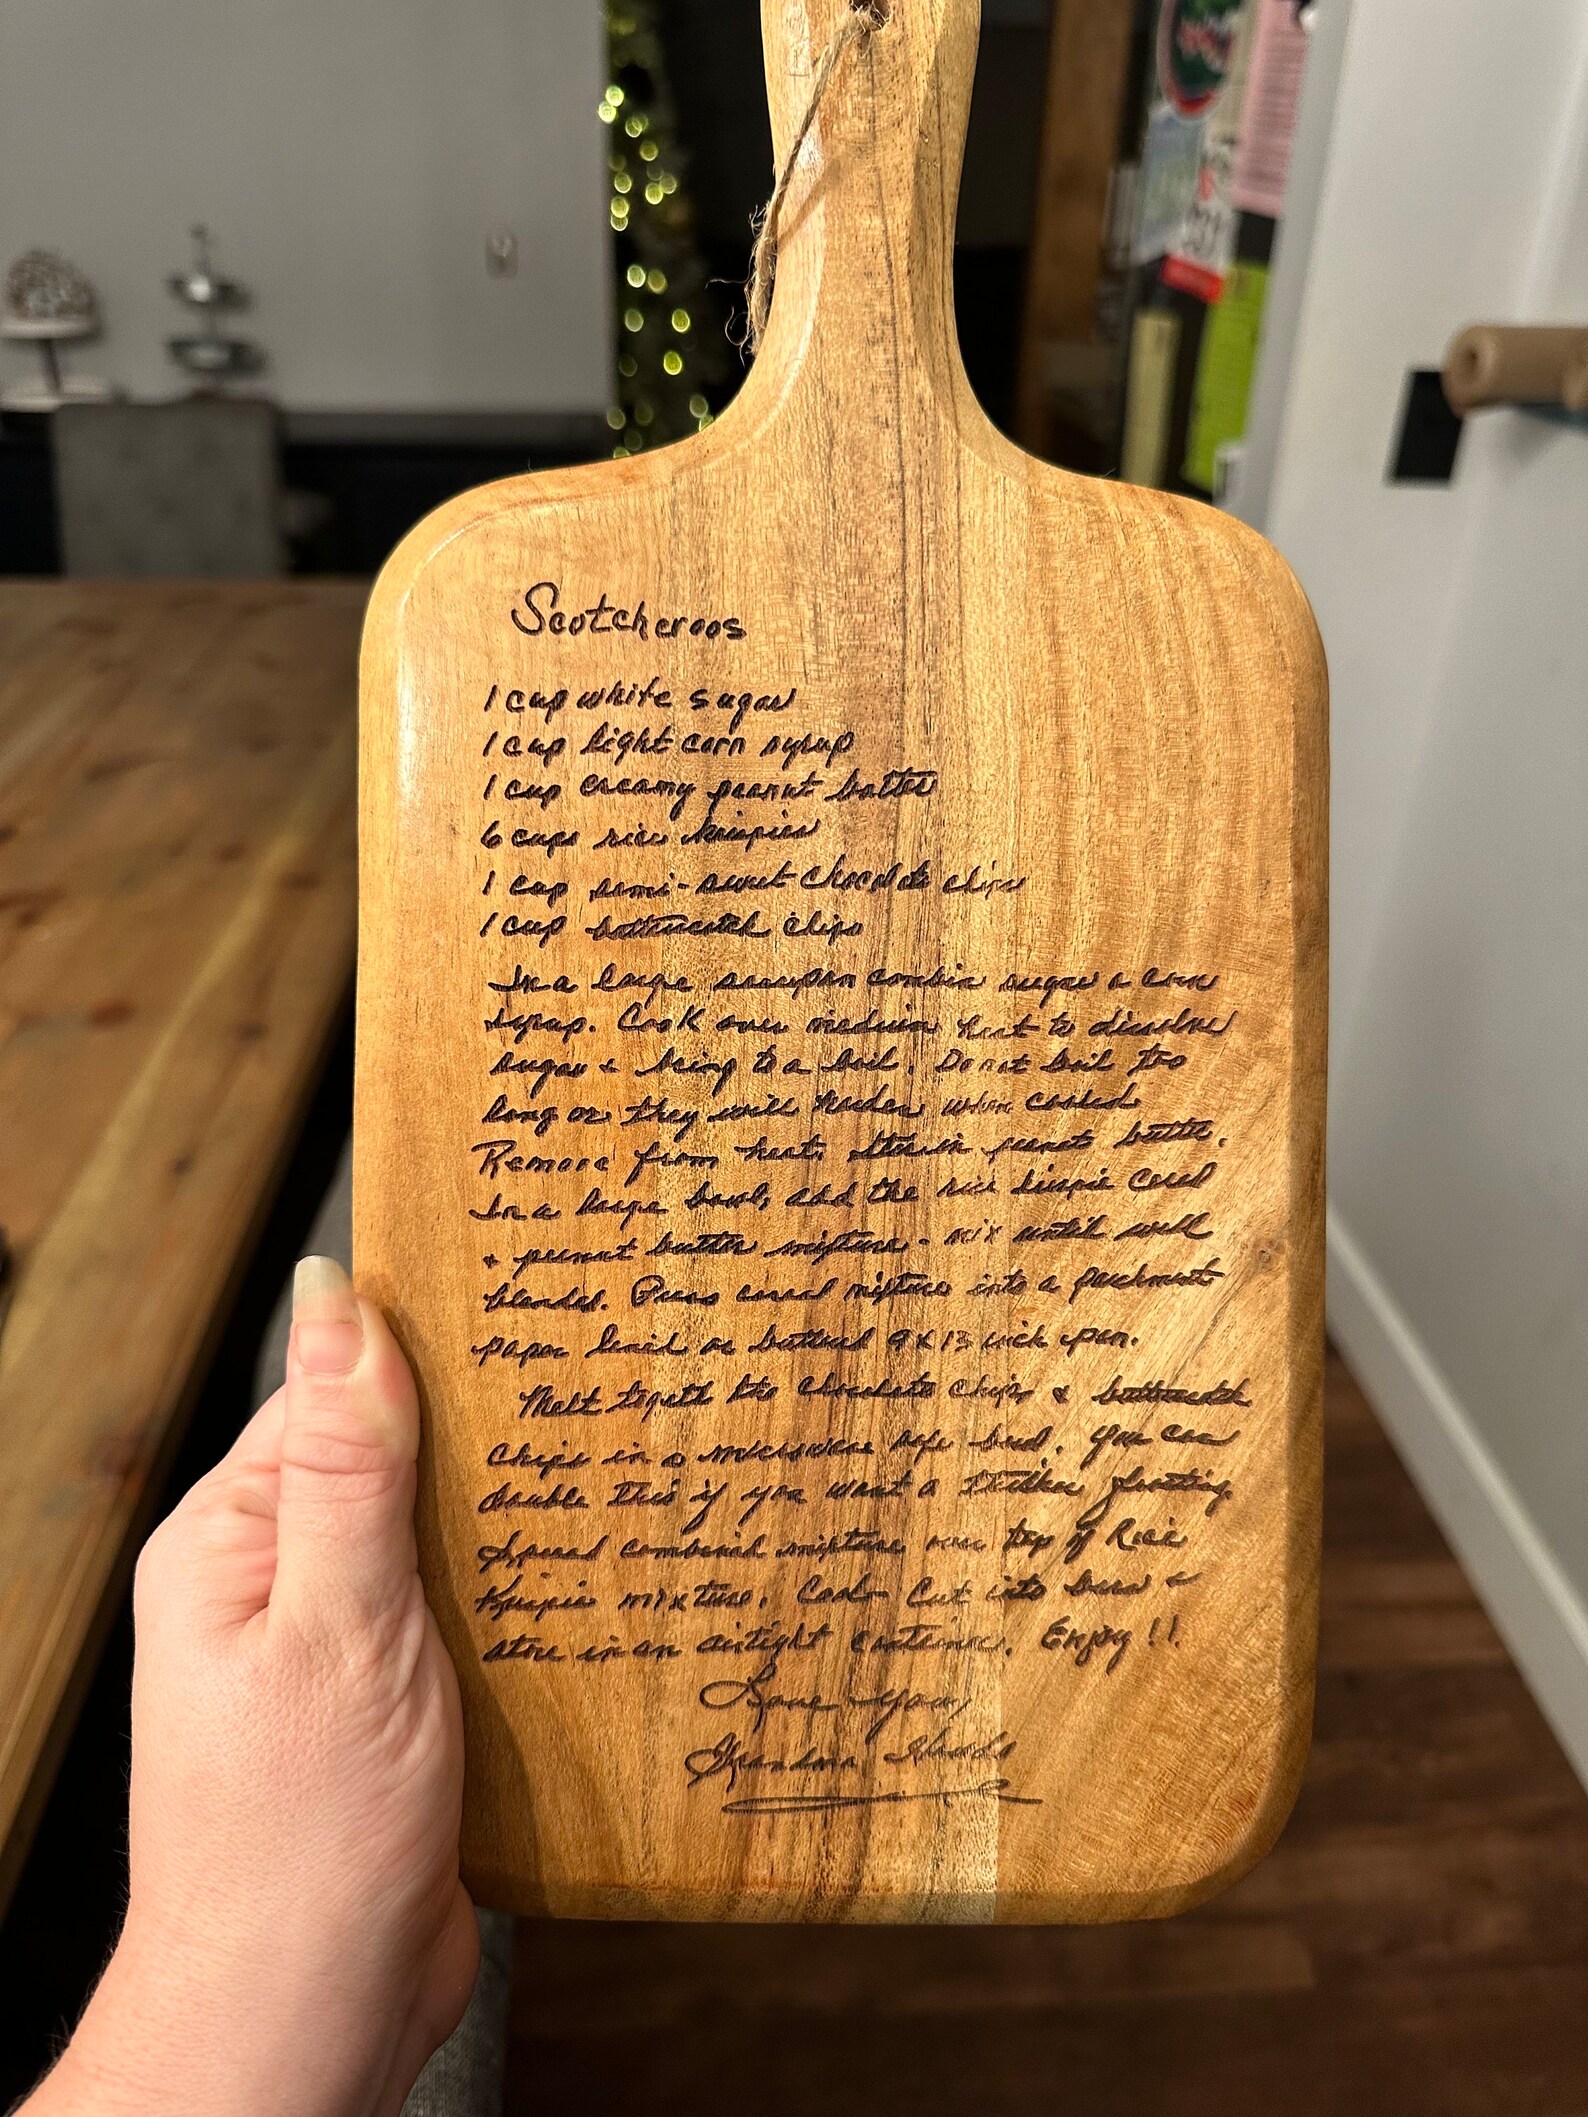 Scotcheroos
1 cup white sugar
1 cup light corn syrup
1 cup creamy peanut butter
6 cups rice krispies
1 cup semi-sweet chocolate chips
1 cup butterscotch chips
In a large saucepan combine sugar & corn
syrup. Cook over medium heat to dissolve
sugar & bring to a boil. Do not boil too
long or they will harden when cooled
Remove from heat. Stir in peanut butter.
In a large bowl, add the rice krispie cereal
& peanut butter mixture - mix until well
blended. Press cereal mixture into a parchment
paper lined or buttered 9x13 inch pan.
Melt together the chocolate chips & butterscotch
chips in a microwave safe bowl. You can
double this if you want a thicker frosting.
Spread combined mixture over top of Rice
Krispie mixture. Cool - Cut into bars &
store in an airtight container. Enjoy!!
Love you,
Grandma